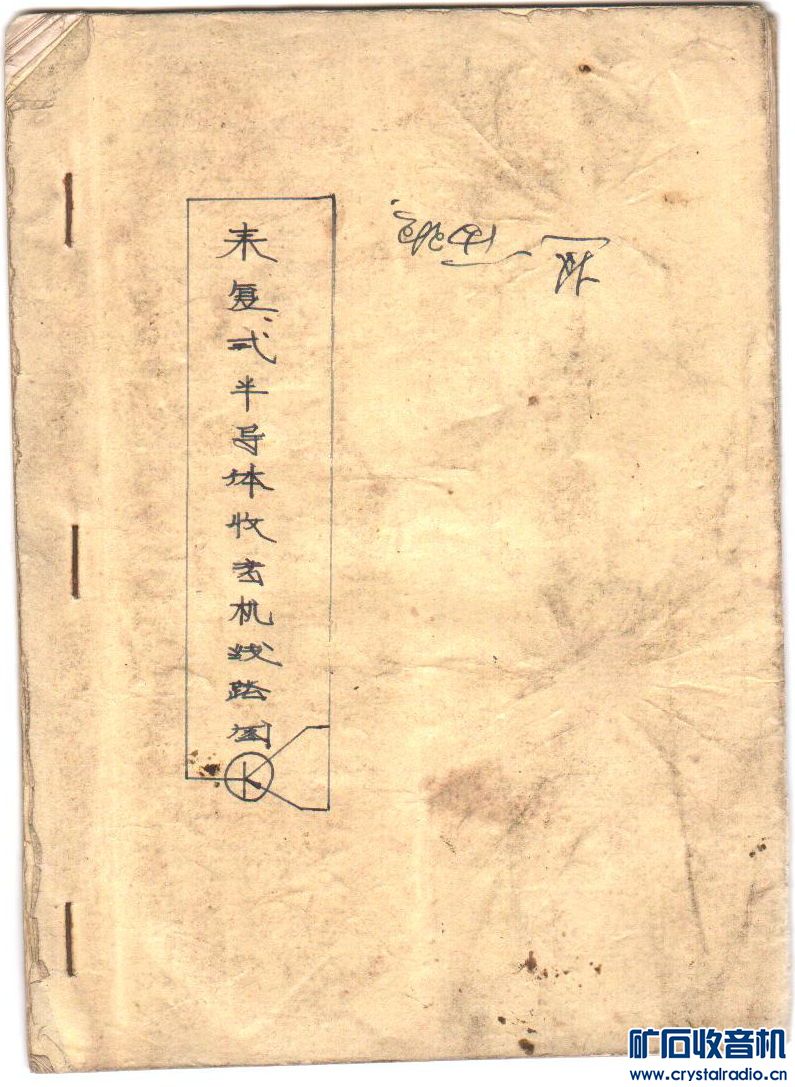 来复式半导体收音机线路图
矿石收音机
www.crystalradio.cn